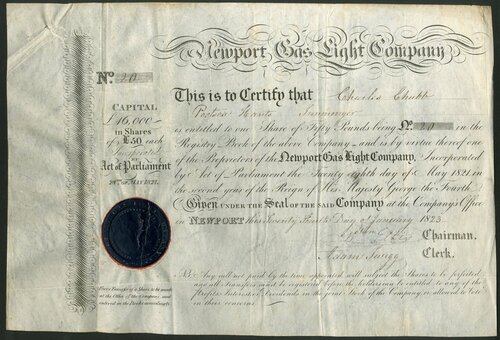 Newport Gas Light Company
No. 20
CAPITAL
£16,000—
in Shares
of £50 each
Incorporated
BY
Act of Parliament
28th of MAY 1821.
This is to Certify that Charles Chubb
Portsea Hants Ironmonger
is entitled to one Share of Fifty Pounds being No. 20 in the
Registry Book of the above Company and is by virtue thereof one
of the Proprietors of the Newport Gas Light Company, Incorporated
by Act of Parliament the Twenty eighth day of May 1821 in
the second year of the Reign of His Majesty George the Fourth.
Given UNDER THE SEAL OF THE SAID Company at the Company's Office
in NEWPORT this Day of January 1823
Chairman.
Clerk.
NB. Any call not paid by the time appointed will subject the Shares to be forfeited
and all Transfers must be registered before the holders can be entitled to any of the
Profits Interest or Dividends in the Joint Stock of the Company, or allowed to Vote
in their concerns.
Every Transfer of a Share to be made
at the Office of the Company and
entered in the Books accordingly.